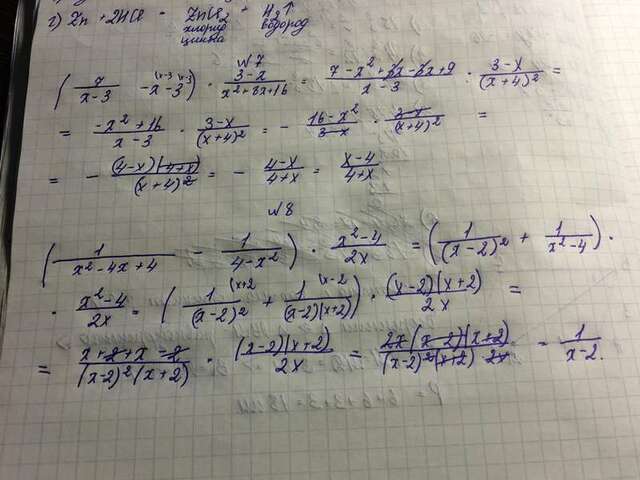 г) Zn + 2HCl = ZnCl₂ + H₂↑
хлорид водород
цинка
№7
(7/(x-3) - x - 3) · (3-x)/(x²+8x+16) = (7-x²+3x-3x+9)/(x-3) · (3-x)/(x+4)² =
= (-x²+16)/(x-3) · (3-x)/(x+4)² = - (16-x²)/(3-x) · (3-x)/(x+4)² =
= - (4-x)(4+x)/(x+4)² = - (4-x)/(4+x) = (x-4)/(4+x)
№8
(1/(x²-4x+4) - 1/(4-x²)) · (x²-4)/2x = (1/(x-2)² + 1/(x²-4)) ·
· (x²-4)/2x = (1/(x-2)² (x+2 + 1/(x-2)(x+2) (x-2) · (x-2)(x+2)/2x =
= (x+2+x-2)/(x-2)²(x+2) · (x-2)(x+2)/2x = 2x(x-2)(x+2)/(x-2)²(x+2) 2x = 1/(x-2).